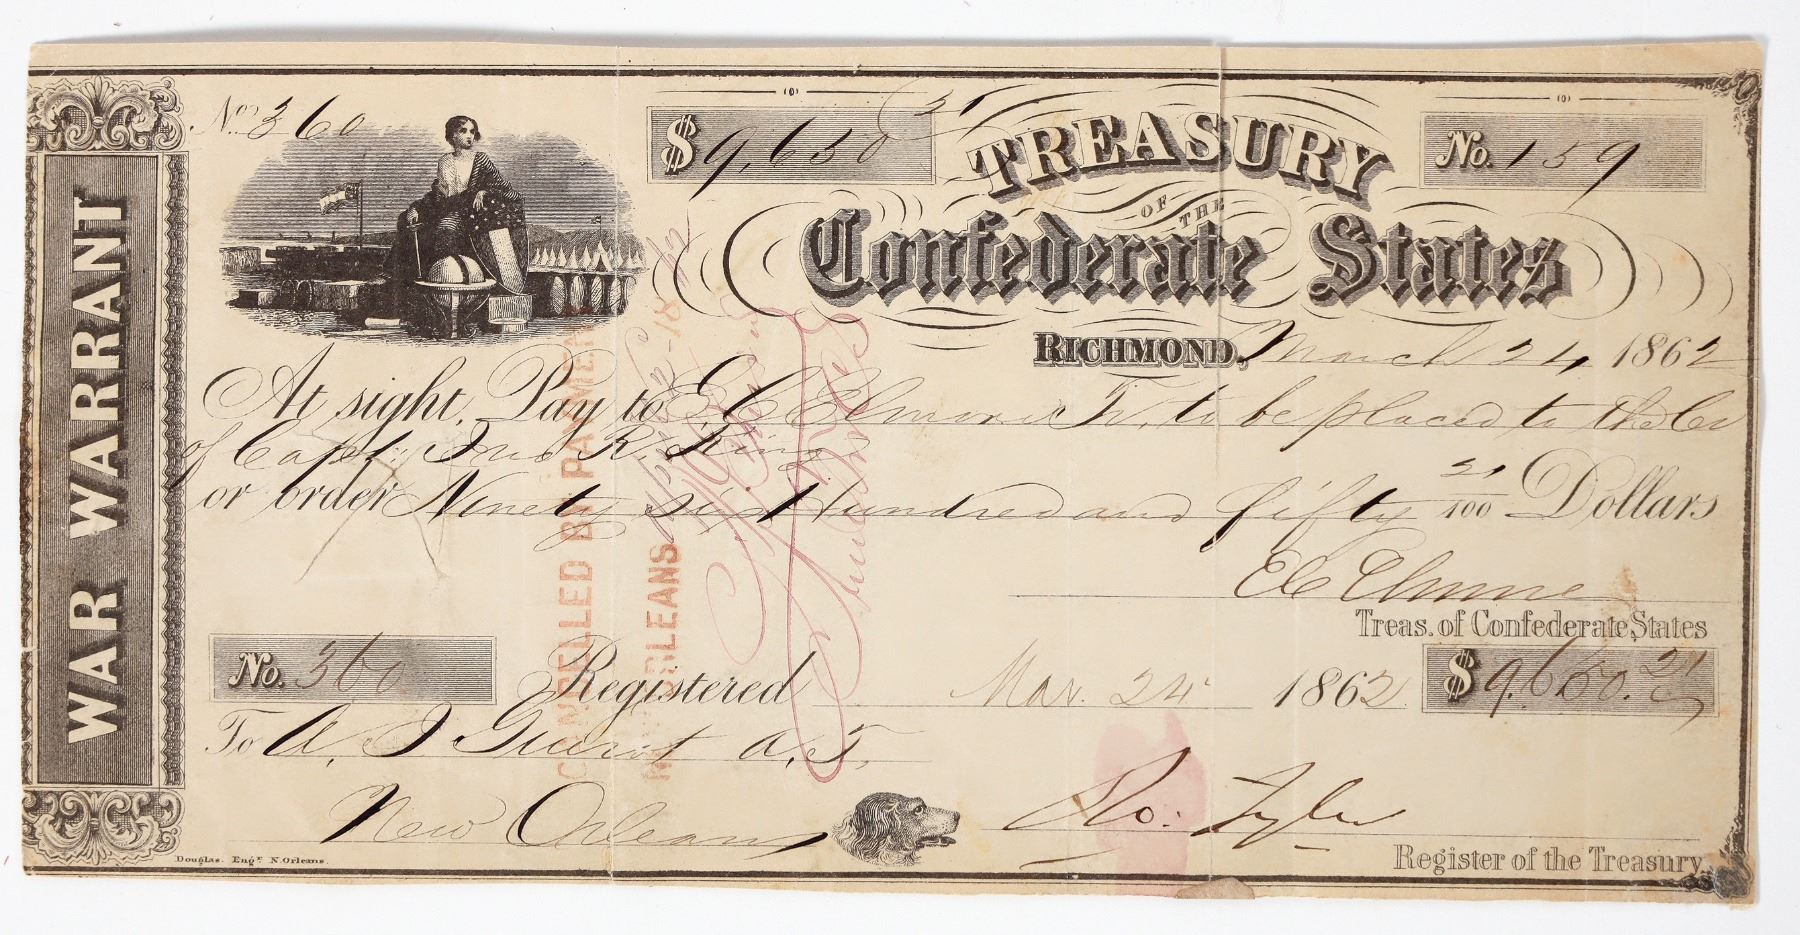 WAR WARRANT
No. 360
$ 9,650 21
No. 159
TREASURY
OF THE
Confederate States
RICHMOND, March 24, 1862
At sight, Pay to E C Elmore Tr, to be placed to the Cr
of Capt. Jno R. King
or order Ninety six Hundred and fifty 21/100 Dollars
E C Elmore
Treas. of Confederate States
No. 360
Registered Mar. 24 1862
$ 9,650.21
To A. J Guirot A. T.
New Orleans
Ro: Tyler
Register of the Treasury
Douglas. Engr. N. Orleans.
CANCELLED BY PAYMENT
NEW ORLEANS